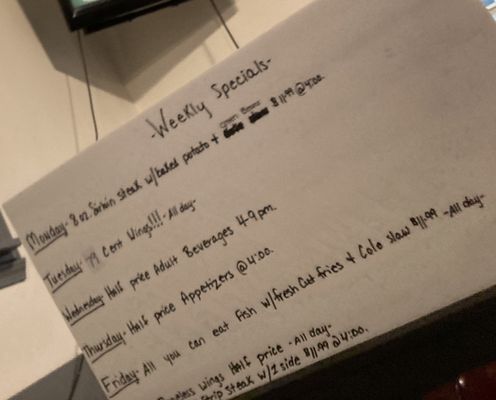 -Weekly Specials-
Monday- 8 oz. Sirloin Steak w/baked potato + green beans $11.99 @4:00.
Tuesday- 79 Cent Wings!!! -All day-
Wednesday- Half price Adult Beverages 4-9 pm.
Thursday- Half price Appetizers @4:00.
Friday- All you can eat Fish w/fresh Cut fries & Cole slaw $11.99 -All day-
Boneless wings Half price -All day-
Strip Steak w/1 side $11.99 @4:00.